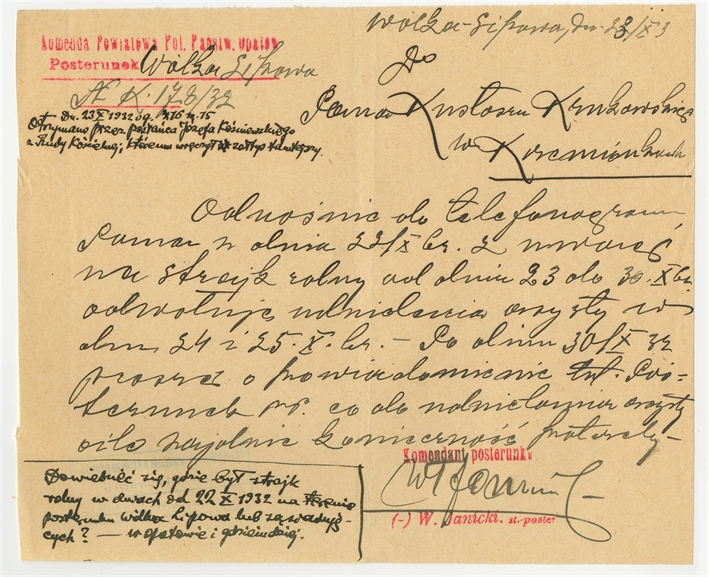 Komenda Powiatowa Pol. Państw. Opatów
Posterunek Wólka Lipowa
N K. 178/32
Dn. 23 X 1932 o g. 15
Otrzymano przez posłańca Józefa Kośniewskiego
z Rudy Kościelnej, któremu wręczył st.
Wólka-Lipowa, dn. 23/X 3
Do
Pana Kustosza Krukowskiego
w Krzemionkach
Odnośnie do telefonogramu
Pana z dnia 22/X br. z uwagi
na strajk rolny od dnia 23 do 30. X br
odwołuję udzielenia asysty w
dn. 24 i 25. X. br. – Po dniu 30/X 32
proszę o powiadomienie tut. Pos-
terunek co do udzielania asysty
o ile zajdzie konieczność potrzeby –
Komendant posterunku
(-) W. Janicki. st.-poster
Dowiedzieć się, gdzie był strajk
rolny w dniach od 22 X 1932 na terenie
posterunku Wólka Lipowa lub sąsiadują-
cych? — w Opatowie i gdzieindziej.